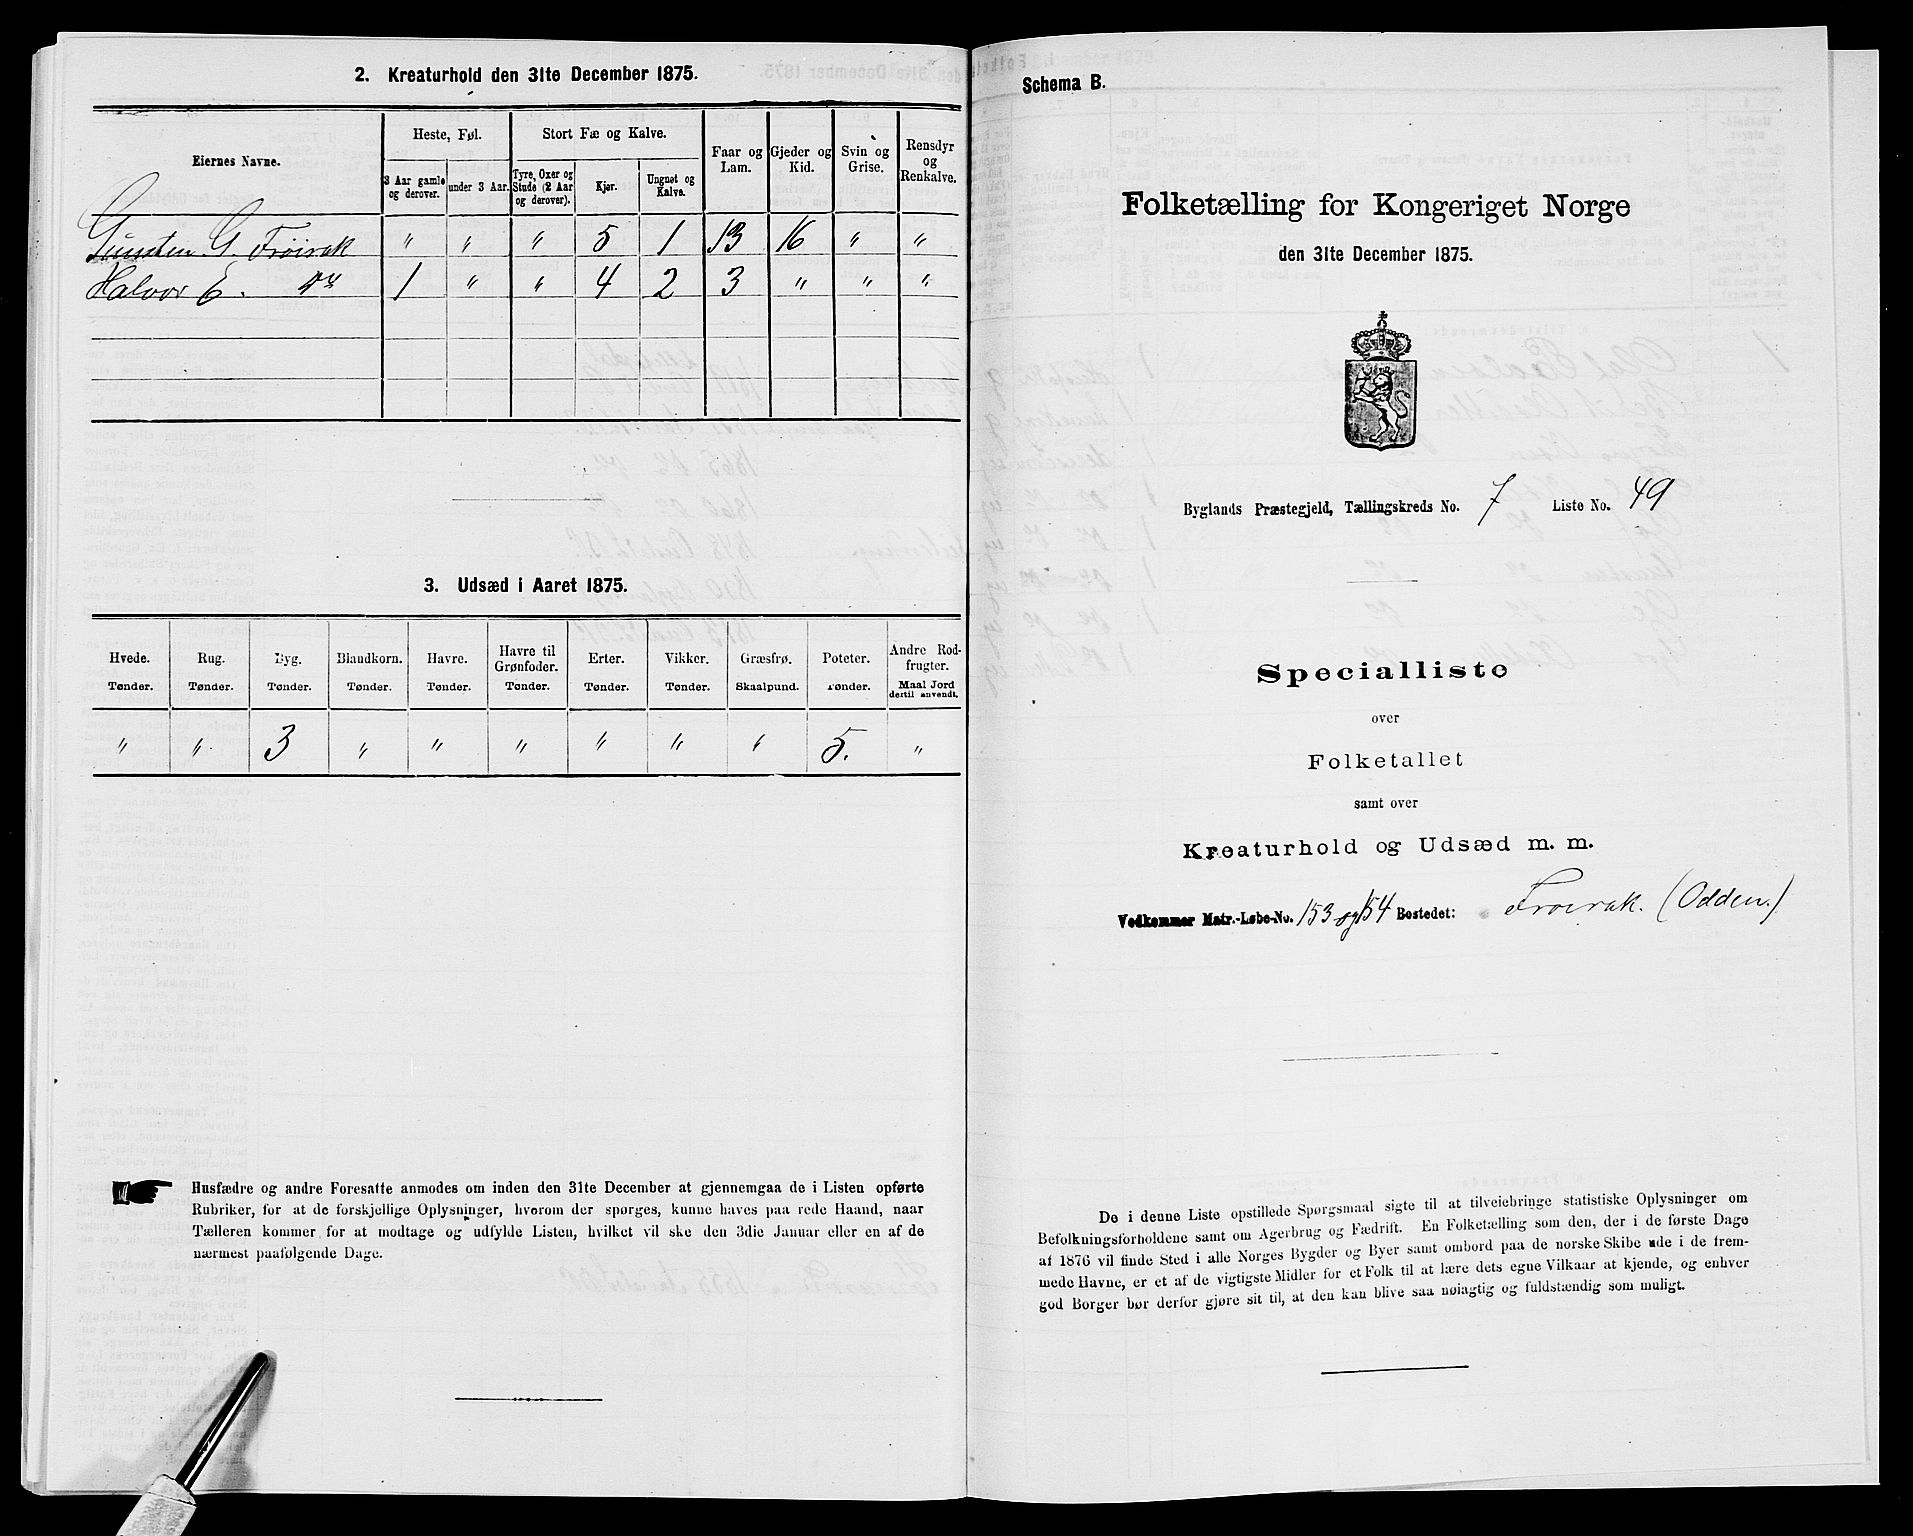 2. Kreaturhold den 31te December 1875.
Eiernes Navne.
Heste, Føl.
Stort Fæ og Kalve.
Faar og Lam.
Gjeder og Kid.
Svin og Grise.
Rensdyr og Renkalve.
3 Aar gamle og derover.
under 3 Aar.
Tyre, Oxer og Stude (2 Aar og derover).
Kjør.
Ungnøt og Kalve.
Gunsten G. Frøirak " " " 5 1 13 16 " "
Halvor E. do 1 " " 4 2 3 " " "
3. Udsæd i Aaret 1875.
Hvede. Tønder.
Rug. Tønder.
Byg. Tønder.
Blandkorn. Tønder.
Havre. Tønder.
Havre til Grønfoder. Tønder.
Erter. Tønder.
Vikker. Tønder.
Græsfrø. Skaalpund.
Poteter. Tønder.
Andre Rodfrugter. Maal Jord dertil anvendt.
" " 3 " " " " " " 5. "
Husfædre og andre Foresatte anmodes om inden den 31te December at gjennemgaa de i Listen opførte
Rubriker, for at de forskjellige Oplysninger, hvorom der spørges, kunne haves paa rede Haand, naar
Tælleren kommer for at modtage og udfylde Listen, hvilket vil ske den 3die Januar eller en af de
nærmest paafølgende Dage.
Schema B.
Folketælling for Kongeriget Norge
den 31te December 1875.
Byglands Præstegjeld, Tællingskreds No. 7 Liste No. 49
Specialliste
over
Folketallet
samt over
Kreaturhold og Udsæd m. m.
Vedkommer Matr.-Løbe-No. 153 og 154 Bostedet: Frøirak. (Odden.)
De i denne Liste opstillede Spørgsmaal sigte til at tilveiebringe statistiske Oplysninger om
Befolkningsforholdene samt om Agerbrug og Fædrift. En Folketælling som den, der i de første Dage
af 1876 vil finde Sted i alle Norges Bygder og Byer samt ombord paa de norske Skibe ude i de frem-
mede Havne, er et af de vigtigste Midler for et Folk til at lære dets egne Vilkaar at kjende, og enhver
god Borger bør derfor gjøre sit til, at den kan blive saa nøiagtig og fuldstændig som muligt.